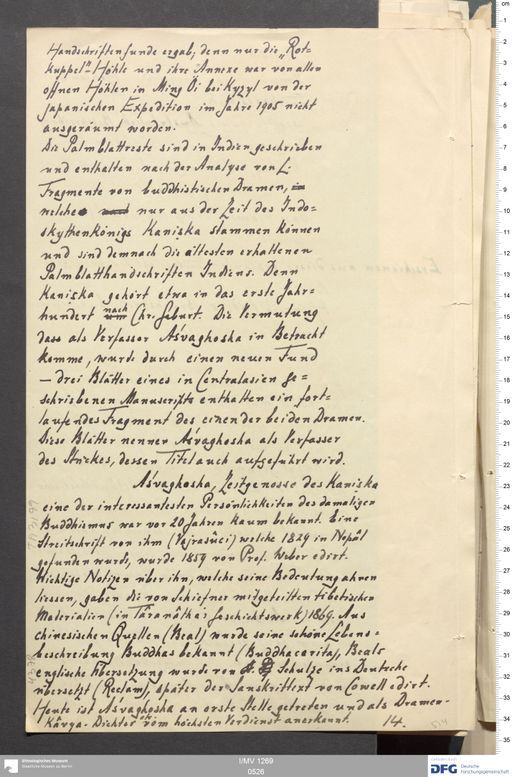 Handschriftenfunde ergab, denn nur die „Rot-
kuppel“-Höhle und ihre Annexe war von allen
offnen Höhlen in Ming Öi bei Kyzyl von der
japanischen Expedition im Jahre 1905 nicht
ausgeräumt worden.
Die Palmblattreste sind in Indien geschrieben
und enthalten nach der Analyse von L:
Fragmente von buddhistischen Dramen,
welche nur aus der Zeit des Indo=
skythenkönigs Kaniṣka stammen können
und sind demnach die ältesten erhaltenen
Palmblatthandschriften Indiens. Denn
Kaniṣka gehört etwa in das erste Jahr-
hundert nach Chr. Geburt. Die Vermutung
dass als Verfasser Aśvaghosha in Betracht
komme, wurde durch einen neuen Fund
— drei Blätter eines in Centralasien ge=
schriebenen Manuscripts enthalten ein fort=
laufendes Fragment des einen der beiden Dramen.
Diese Blätter nennen Aśvaghosha als Verfasser
des Stückes, dessen Titel auch aufgeführt wird.
Aśvaghosha, Zeitgenosse des Kaniṣka
eine der interessantesten Persönlichkeiten des damaligen
Buddhismus war vor 20 Jahren kaum bekannt. Eine
Streitschrift von ihm (Vajrasûci) welche 1829 in Nepâl
gefunden wurde, wurde 1859 von Prof. Weber edirt.
Wichtige Notizen über ihn, welche seine Bedeutung ahnen
liessen, gaben die von Schiefner mitgeteilten tibetischen
Materialien (in Târanâtha's Geschichtswerk) 1869. Aus
chinesischen Quellen (Beal) wurde seine schöne Lebens=
beschreibung Buddhas bekannt (Buddhacarita), Beals
englische Übersetzung wurde von Schulze ins Deutsche
übersetzt (Reclam), später der Sanskrittext von Cowell edirt.
Heute ist Aśvaghosha an erste Stelle getreten und als Dramen-
Kâvya-Dichter etc vom höchsten Verdienst anerkannt. 14.
I/MV 1269
0526
Ethnologisches Museum
Staatliche Museen zu Berlin
DFG Deutsche
Forschungsgemeinschaft